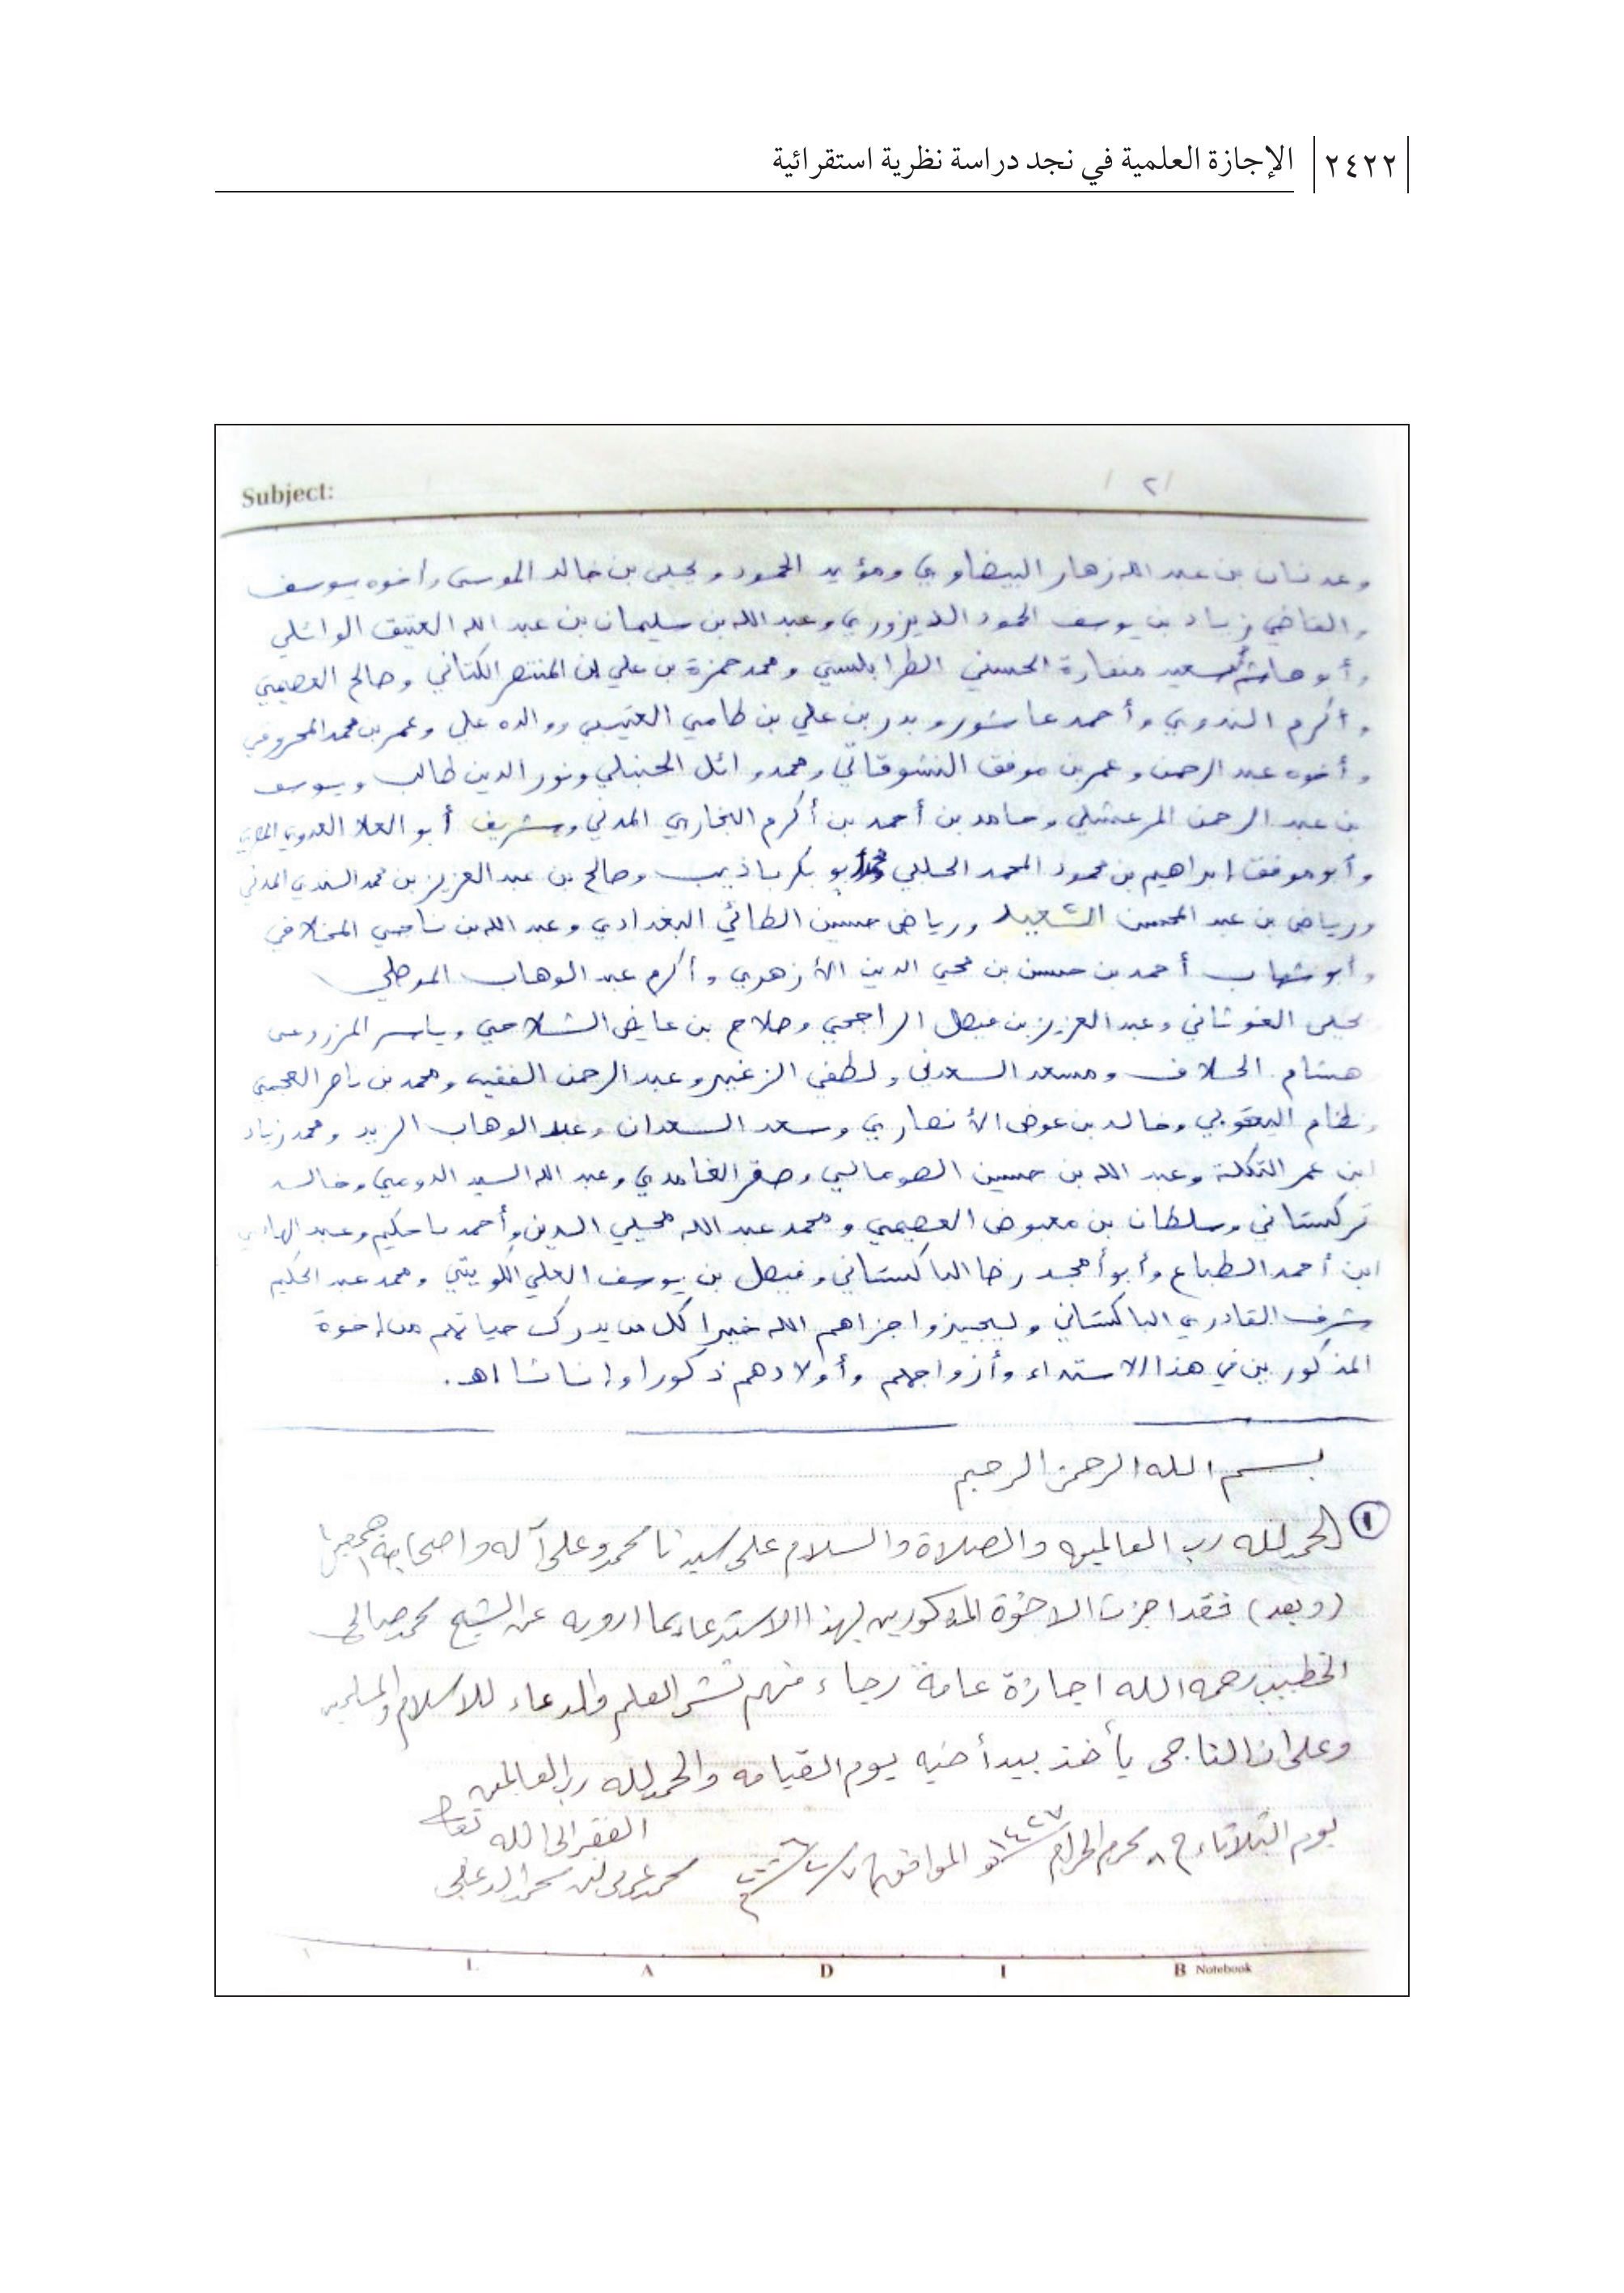 ٢٤٢٢ الإجازة العلمية في نجد دراسة نظرية استقرائية
Subject:
/ ٢ /
وعدنان بن عبد الله زهار البيضاوي ومؤيد الحمود ويحيى بن خالد الموسى وأخوه يوسف
والقاضي زياد بن يوسف الحمود الديزوري وعبد الله بن سليمان بن عبد الله العتيق الوائلي
وأبو هاشم سعيد منقارة الحسني الطرابلسي ومحمد حمزة بن علي بن المنتصر الكتاني وصالح العصيمي
وأكرم الندوي وأحمد عاشور وبدر بن علي بن طامي العتيبي ووالده علي وعمر بن محمد
وأخوه عبد الرحمن وعمر بن موفق النشوقاتي ومحمد وائل الحنبلي ونور الدين طالب ويوسف
بن عبد الرحمن المرعشلي وحامد بن أحمد بن أكرم البخاري المدني وشريف أبو العلا العدوي المصري
وأبو موفق إبراهيم بن محمود المحمد الحلبي أبو بكر باذيب وصالح بن عبد العزيز بن محمد السندي المدني
ورياض بن عبد المحسن السعيد ورياض حسين الطائي البغدادي وعبد الله بن ناجي المخلافي
وأبو شهاب أحمد بن حسن بن محيي الدين الأزهري وأكرم عبد الوهاب الموصلي
يحيى الغوثاني وعبد العزيز بن فيصل الراجحي وصلاح بن عايض الشلاحي وياسر المزروعي
هشام الحلاف ومسعد السعدني ولطفي الزغير وعبد الرحمن الفقيه ومحمد بن ناصر العجمي
ونظام اليعقوبي وخالد بن عوض الأنصاري وسعد السعدان وعبد الوهاب الزيد ومحمد زياد
ابن عمر التكلة وعبد الله بن حسين الصومالي وصقر الغامدي وعبد الله السيد الدوعي وخالد
تركستاني وسلطان بن معيوض العصيمي ومحمد عبد الله محيي الدين وأحمد باحكيم وعبد الهادي
ابن أحمد الطباع وأبو أمجد رضا الباكستاني وفيصل بن يوسف العلي الكويتي ومحمد عبد الحكيم
شرف القادري الباكستاني وليجيزوا جزاهم الله خيرا كل من يدرك حياتهم من إخوة
المذكورين في هذا الاستدعاء وأزواجهم وأولادهم ذكورا وإناثا اهـ.
بسم الله الرحمن الرحيم
١ الحمد لله رب العالمين والصلاة والسلام على سيدنا محمد وعلى آله واصحابه اجمعين
(وبعد) فقد اجزت الاخوة المذكورين بهذا الاستدعاء بما ارويه عن الشيخ محمد صالح
الخطيب رحمه الله اجازة عامة رجاء منهم نشر العلم والدعاء للاسلام والمسلمين
وعلى ان الناجي يأخذ بيد أخيه يوم القيامة والحمد لله رب العالمين
يوم الثلاثاء ٨ محرم الحرام ١٤٢٧ الموافق ٧/٢/٢٠٠٦ الفقير الى الله تعالى
محمد
L A D I B Notebook